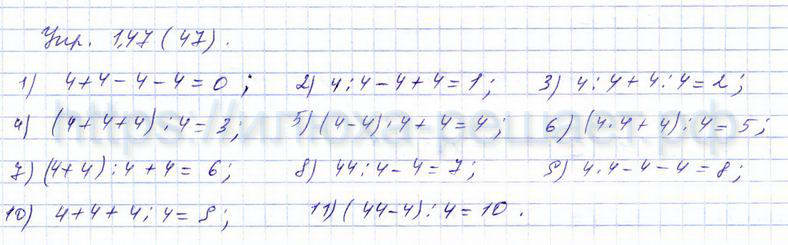 Упр. 1,47 (47).
1) 4+4-4-4=0; 2) 4:4-4+4=1; 3) 4:4+4:4=2;
https://илюха-решает.рф
4) (4+4+4):4=3; 5) (4-4)·4+4=4; 6) (4·4+4):4=5;
7) (4+4):4+4=6; 8) 44:4-4=7; 9) 4·4-4-4=8;
10) 4+4+4:4=9; 11) (44-4):4=10.